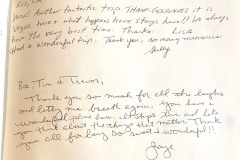 Bea, Tim
Yeow! Another fantastic trip THANK GOODNESS it is
Vegas here & what happens here stays here!! We always
have the very best time. Thanks. LISA
Had a wonderful trip. Thank you, so many memories
Sully
Bea, Tim & Trevor,
Thank you so much for all the laughs
and letting me breath again. You have a
wonderful place here, it stops time and lets
you think about the things that matter. Thank
you all for being so sweet & wonderful!!
Gaye